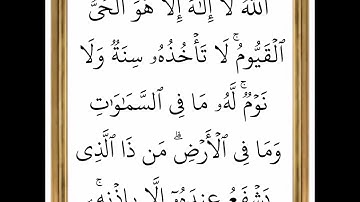 ٱللَّهُ لَآ إِلَٰهَ إِلَّا هُوَ ٱلْحَىُّ
ٱلْقَيُّومُ ۚ لَا تَأْخُذُهُۥ سِنَةٌ وَلَا
نَوْمٌ ۚ لَّهُۥ مَا فِى ٱلسَّمَٰوَٰتِ
وَمَا فِى ٱلْأَرْضِ ۗ مَن ذَا ٱلَّذِى
يَشْفَعُ عِندَهُۥٓ إِلَّا بِإِذْنِهِۦ ۚ